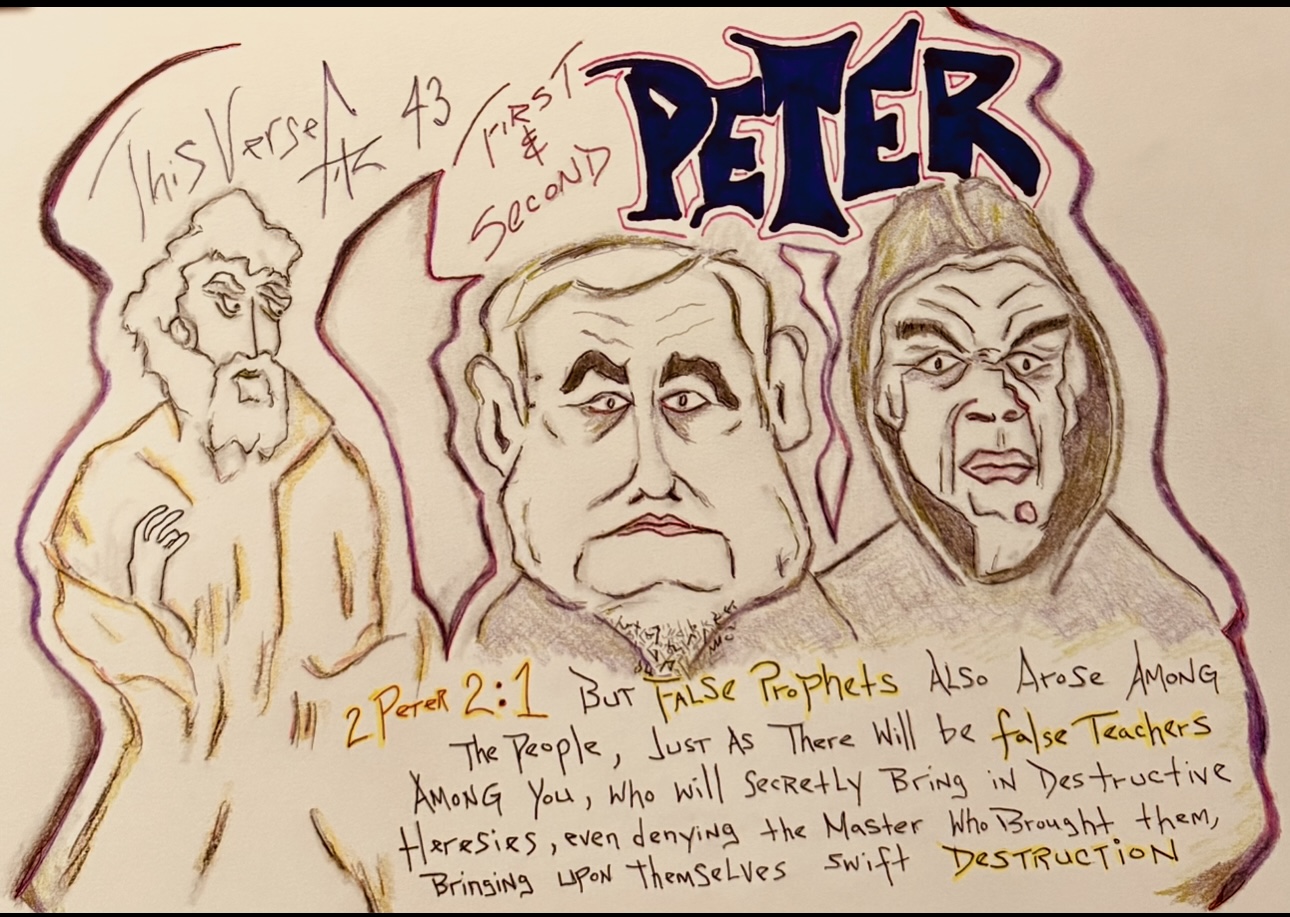 This Verse 43
FIRST
&
SECOND
PETER
2 Peter 2:1 But False Prophets Also Arose Among
The People, Just As There Will be false Teachers
Among You, who will secretly Bring in Destructive
Heresies, even denying the Master Who Brought them,
Bringing upon themselves swift Destruction